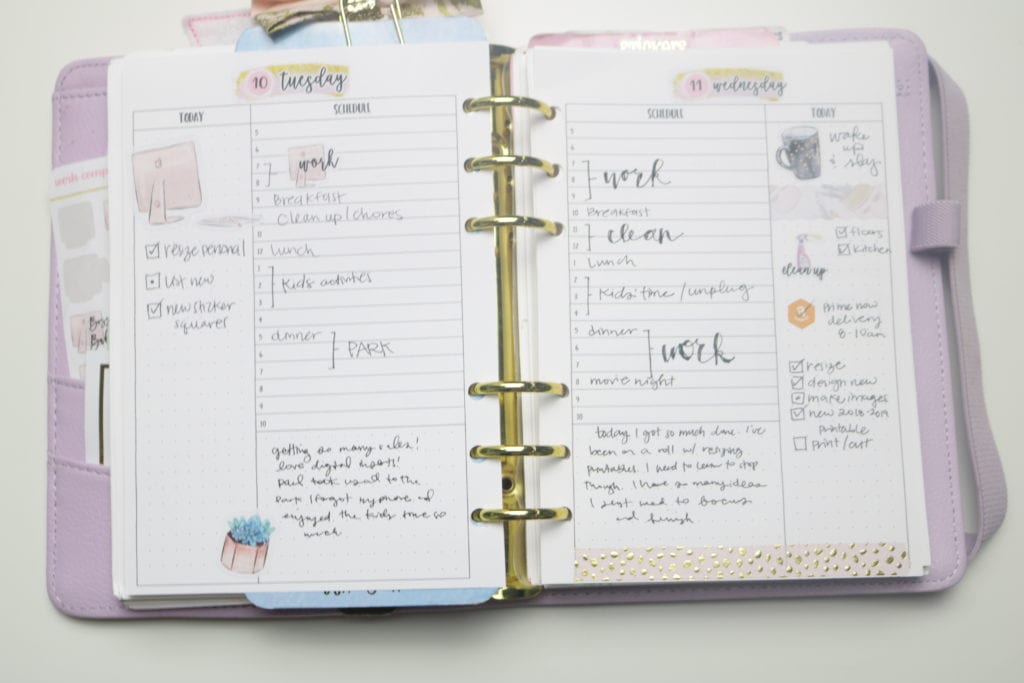 10 tuesday
TODAY
SCHEDULE
5
6
7 work
8
9 Breakfast
clean up/chores
11
12 Lunch
1 Kids activities
2
3
4
5 dinner
6 PARK
7
8
9
10
resize personal
list new
new sticker
squares
getting so many sales!
love digital
Paul took used to the
Park I forgot my phone and
enjoyed the kids time so
much
11 wednesday
SCHEDULE
TODAY
5
6
7
8 work
9
10 Breakfast
11 clean
12
1 Lunch
2
3 Kids' time/unplug
4
5 dinner
6 work
7
8 movie night
9
10
today I got so much done. I've
been on a roll w/ resizing
printables. I need to learn to stop
though. I have so many ideas
I just need to focus
and finish
wake
up
& slay
floors
Kitchen
clean up
Prime now
delivery
8-10am
resize
design new
make images
new 2018-2019
printable
print/cut